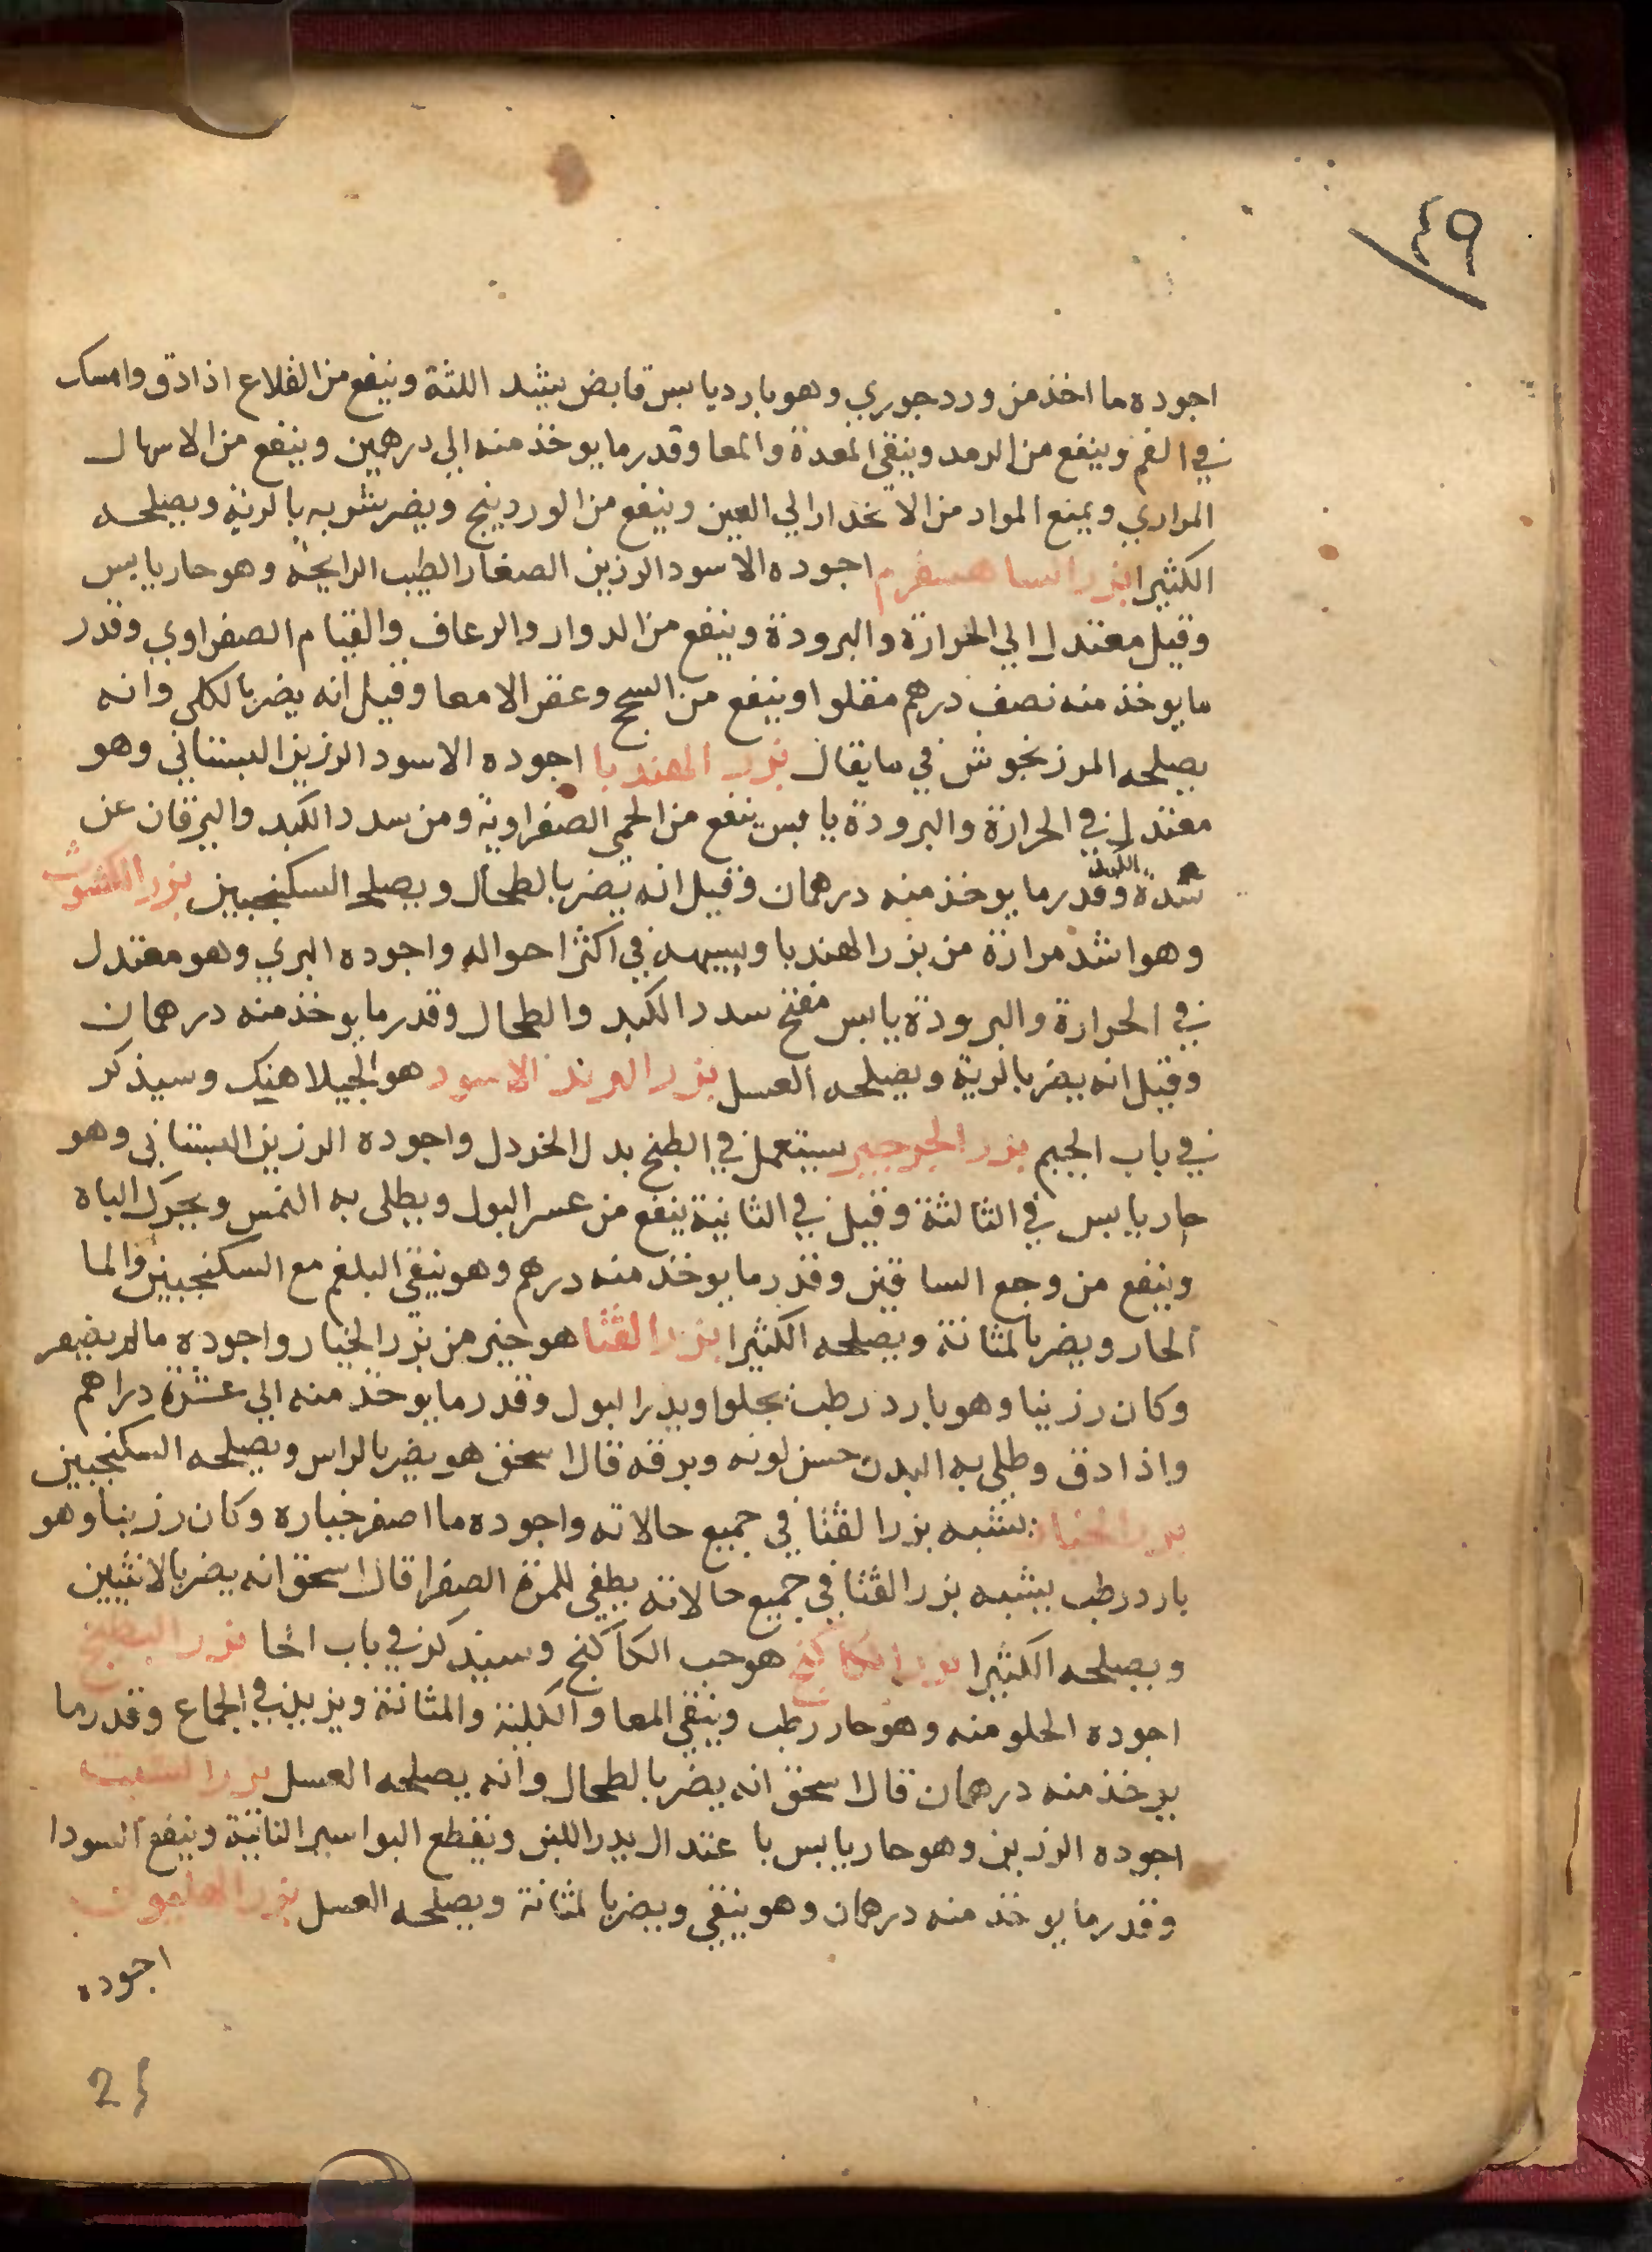 ٤٩
اجوده ما اخذ من ورد جوري وهو بارد يابس قابض يشد اللثة وينفع من القلاع اذا دق وامسك
في الفم وينفع من الرمد وينقي المعدة والمعا وقدر ما يوخذ منه الي درهمين وينفع من الاسهال
المراري ويمنع المواد من الانحدار الي العين وينفع من الوردينج ويضر شربه بالرية ويصلحه
الكثيرا بزر الساهسفرم اجوده الاسود الرزين الصغار الطيب الرايحة وهو حار يابس
وقيل معتدل الي الحرارة والبرودة وينفع من الدوار والرعاف والقيام الصفراوي وقدر
ما يوخذ منه نصف درهم مقلوا وينفع من السحج وعقر الامعا وقيل انه يضر بالكلي وانه
يصلحه المرزنجوش في ما يقال بزر الهندبا اجوده الاسود الرزين البستاني وهو
معتدل في الحرارة والبرودة يابس ينفع من الحمي الصفراوية ومن سدد الكبد واليرقان عن
سدة وقدر ما يوخذ منه درهمان وقيل انه يضر بالطحال ويصلحه السكنجبين بزر الكشوث
وهو اشد مرارة من بزر الهندبا ويشبهه في اكثر احواله واجوده البري وهو معتدل
في الحرارة والبرودة يابس مفتح سدد الكبد والطحال وقدر ما يوخذ منه درهمان
وقيل انه يضر بالرية ويصلحه العسل بزر الاسود هو الجبلاهنك وسيذكر
في باب الجيم بزر الجرجير يستعمل في الطبخ بدل الخردل واجوده الرزين البستاني وهو
حار يابس في الثالثة وقيل في الثانية ينفع من عسر البول ويطلى به النمس ويحرك الباه
وينفع من وجع الساقين وقدر ما يوخذ منه درهم وهو ينقي البلغم مع السكنجبين والما
الحار ويضر بالمثانة ويصلحه الكثيرا بزر القثا هو خير من بزر الخيار واجوده ما لم يضمر
وكان رزينا وهو بارد رطب يجلوا ويدر البول وقدر ما يوخذ منه الي عشرة دراهم
واذا دق وطلي به البدن حسن لونه وبرقه قال اسحق هو يضر بالراس ويصلحه السكنجبين
بزر الخيار يشبه بزر القثا في جميع حالاته واجوده ما اصفر خياره وكان رزينا وهو
بارد رطب يشبه بزر القثا في جميع حالاته يطفي للمرة الصفرا قال اسحق انه يضر بالانثيين
ويصلحه الكثيرا بزر الكاكنج هو حب الكاكنج وسيذكر في باب الحا بزر البطيخ
اجوده الحلو منه وهو حار رطب وينقي المعا والكلية والمثانة ويزيد في الجماع وقدر ما
يوخذ منه درهمان قال اسحق انه يضر بالطحال وانه يصلحه العسل بزر الشبت
اجوده الرزين وهو حار يابس باعتدال يدر اللبن ويقطع البواسير الناتية وينفع السودا
وقدر ما يوخذ منه درهمان وهو ينقي ويضر بالمثانة ويصلحه العسل بزر الهليون
اجوده